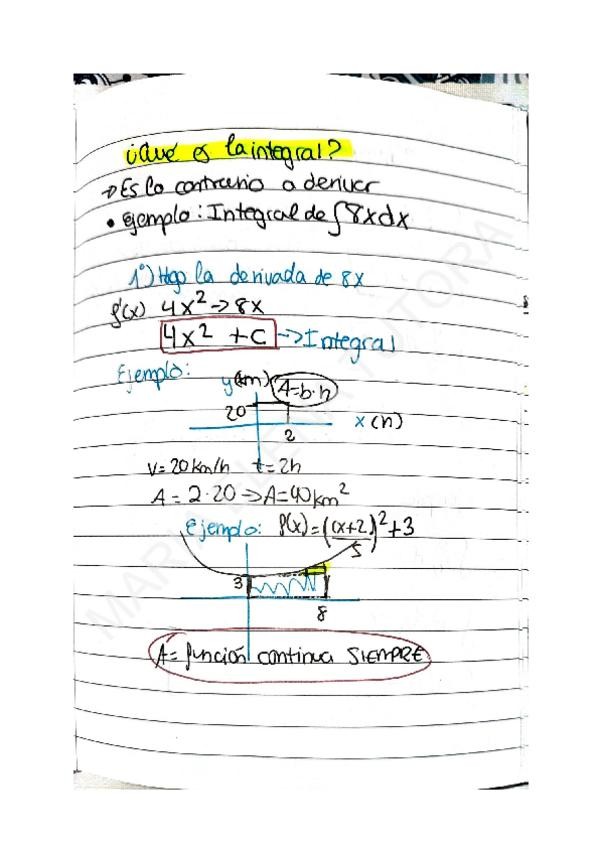 ¿Qué es la integral?
→ Es lo contrario a derivar
• Ejemplo: Integral de ∫8xdx
1º) Hago la derivada de 8x
f'(x) 4x² → 8x
4x² + C → Integral
Ejemplo:
y(km) A=b·h
20
x(h)
2
V=20km/h t=2h
A = 2·20 ⇒ A=40km²
Ejemplo: f(x)=((x+2)/5)²+3
3
8
A= función continua SIEMPRE
MARIA ELENA TUTORA